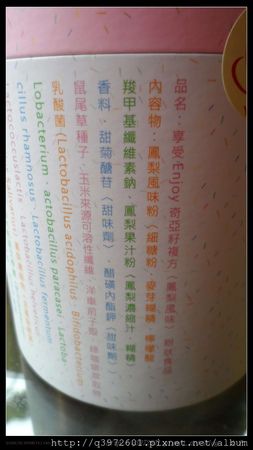 品名：享受Enjoy 奇亞籽複方（鳳梨風味）
內容物：鳳梨風味粉（細糖粉、麥芽糊精、檸檬酸
羧甲基纖維素鈉、鳳梨果汁粉（鳳梨濃縮汁、糊精）
香料、甜菊醣苷（甜味劑）醋磺內酯鉀（甜味劑）
鼠尾草種子、玉米來源可溶性纖維、洋車前子殼、
乳酸菌（Lactobacillus acidophilus、Bifidobacterium
Lobacterium、actobacillus paracasei、Lactoba
cillus rhamnosus、Lactobacillus fermentum
Lactococcuslactis、Lactobacillus helveticus
http://q3972601.pixnet.net/album